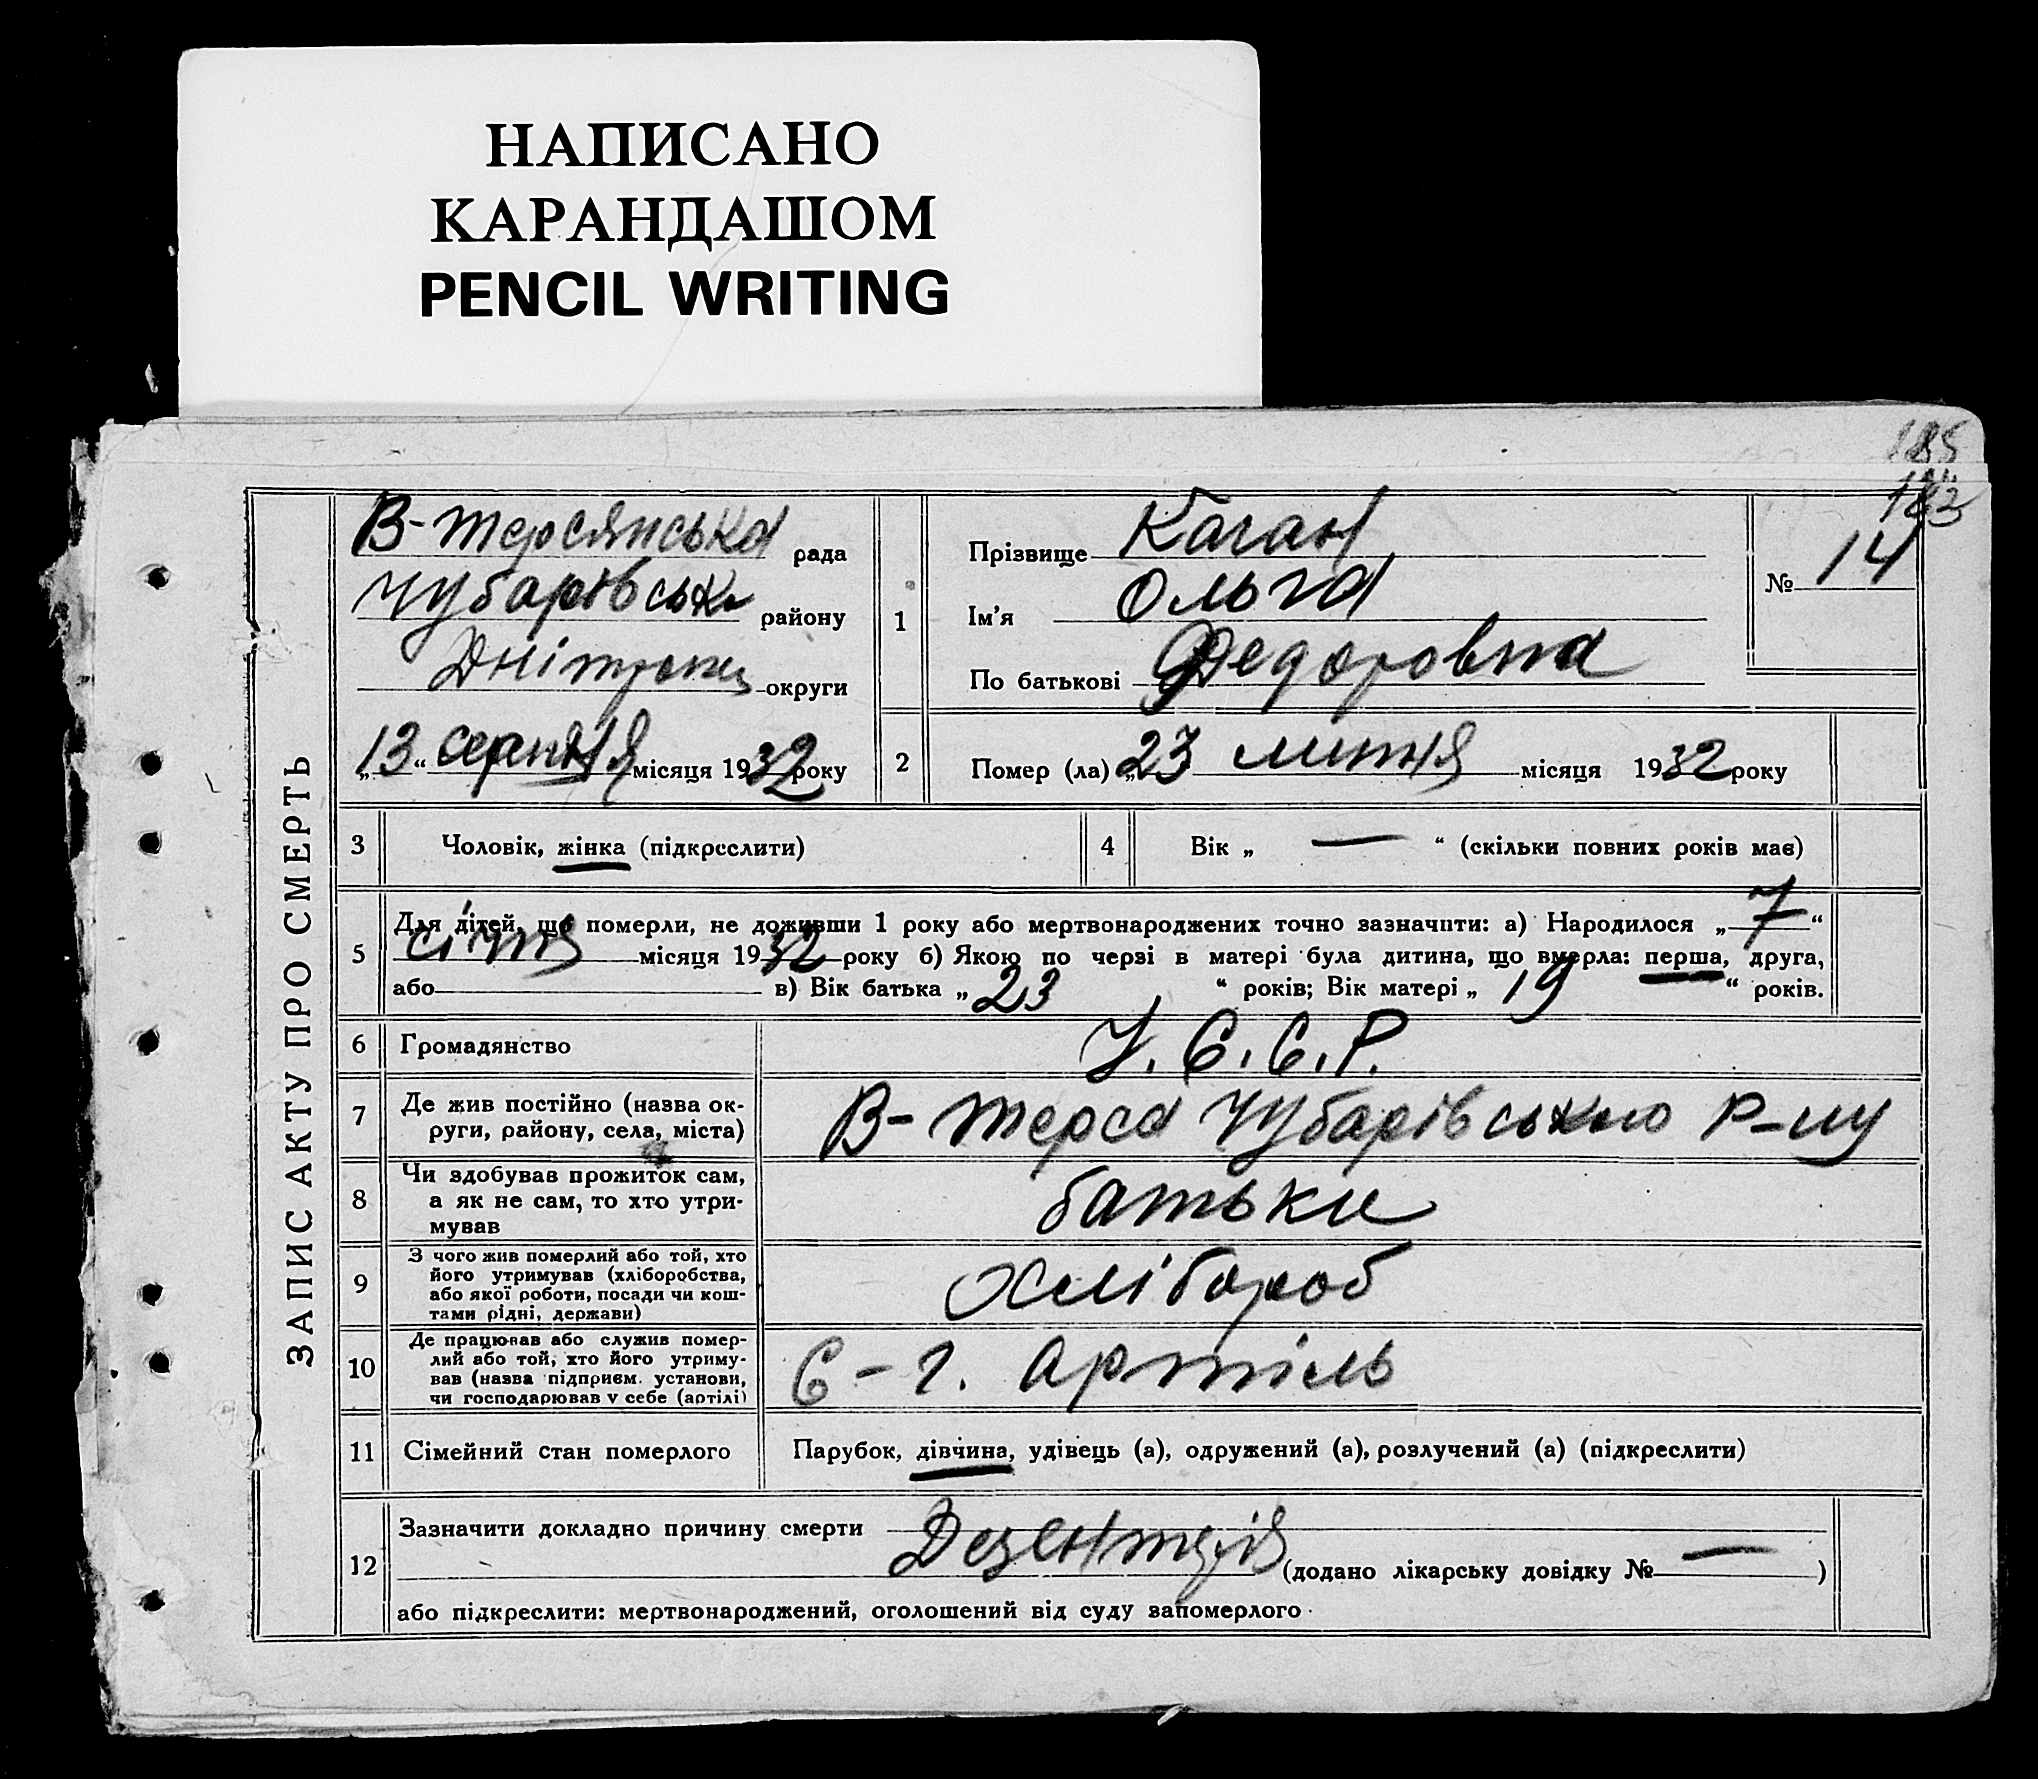 НАПИСАНО
КАРАНДАШОМ
PENCIL WRITING
185
ЗАПИС АКТУ ПРО СМЕРТЬ
В-Терсянська рада
Чубарівськ району
Дніпропец округи
„13“ серпня місяця 1932 року
1
Прізвище Каган
Ім'я Ольга
По батькові Федоровна
№ 14
2
Помер (ла) „23 липня місяця 1932 року
3 Чоловік, жінка (підкреслити)
4 Вік „ — “ (скільки повних років має)
5 Для дітей, що померли, не доживши 1 року або мертвонароджених точно зазначити: а) Народилося „ 7 “
січня місяця 1932 року б) Якою по черзі в матері була дитина, що вмерла: перша, друга,
або в) Вік батька „ 23 “ років; Вік матері „ 19 “ років.
6 Громадянство У.С.С.Р.
7 Де жив постійно (назва ок-
руги, району, села, міста) В-Терса Чубарівського р-ну
8 Чи здобував прожиток сам,
а як не сам, то хто утри-
мував
батьки
9 З чого жив померлий або той, хто
його утримував (хліборобства,
або якої роботи, посади чи кош-
тами рідні, держави)
Хлібороб
10 Де працював або служив помер-
лий або той, хто його утриму-
вав (назва підприєм. установи,
чи господарював у себе (артілі)
С-г. артіль
11 Сімейний стан померлого Парубок, дівчина, удівець (а), одружений (а), розлучений (а) (підкреслити)
12 Зазначити докладно причину смерти
Дезентерія (додано лікарську довідку № — )
або підкреслити: мертвонароджений, оголошений від суду запомерлого